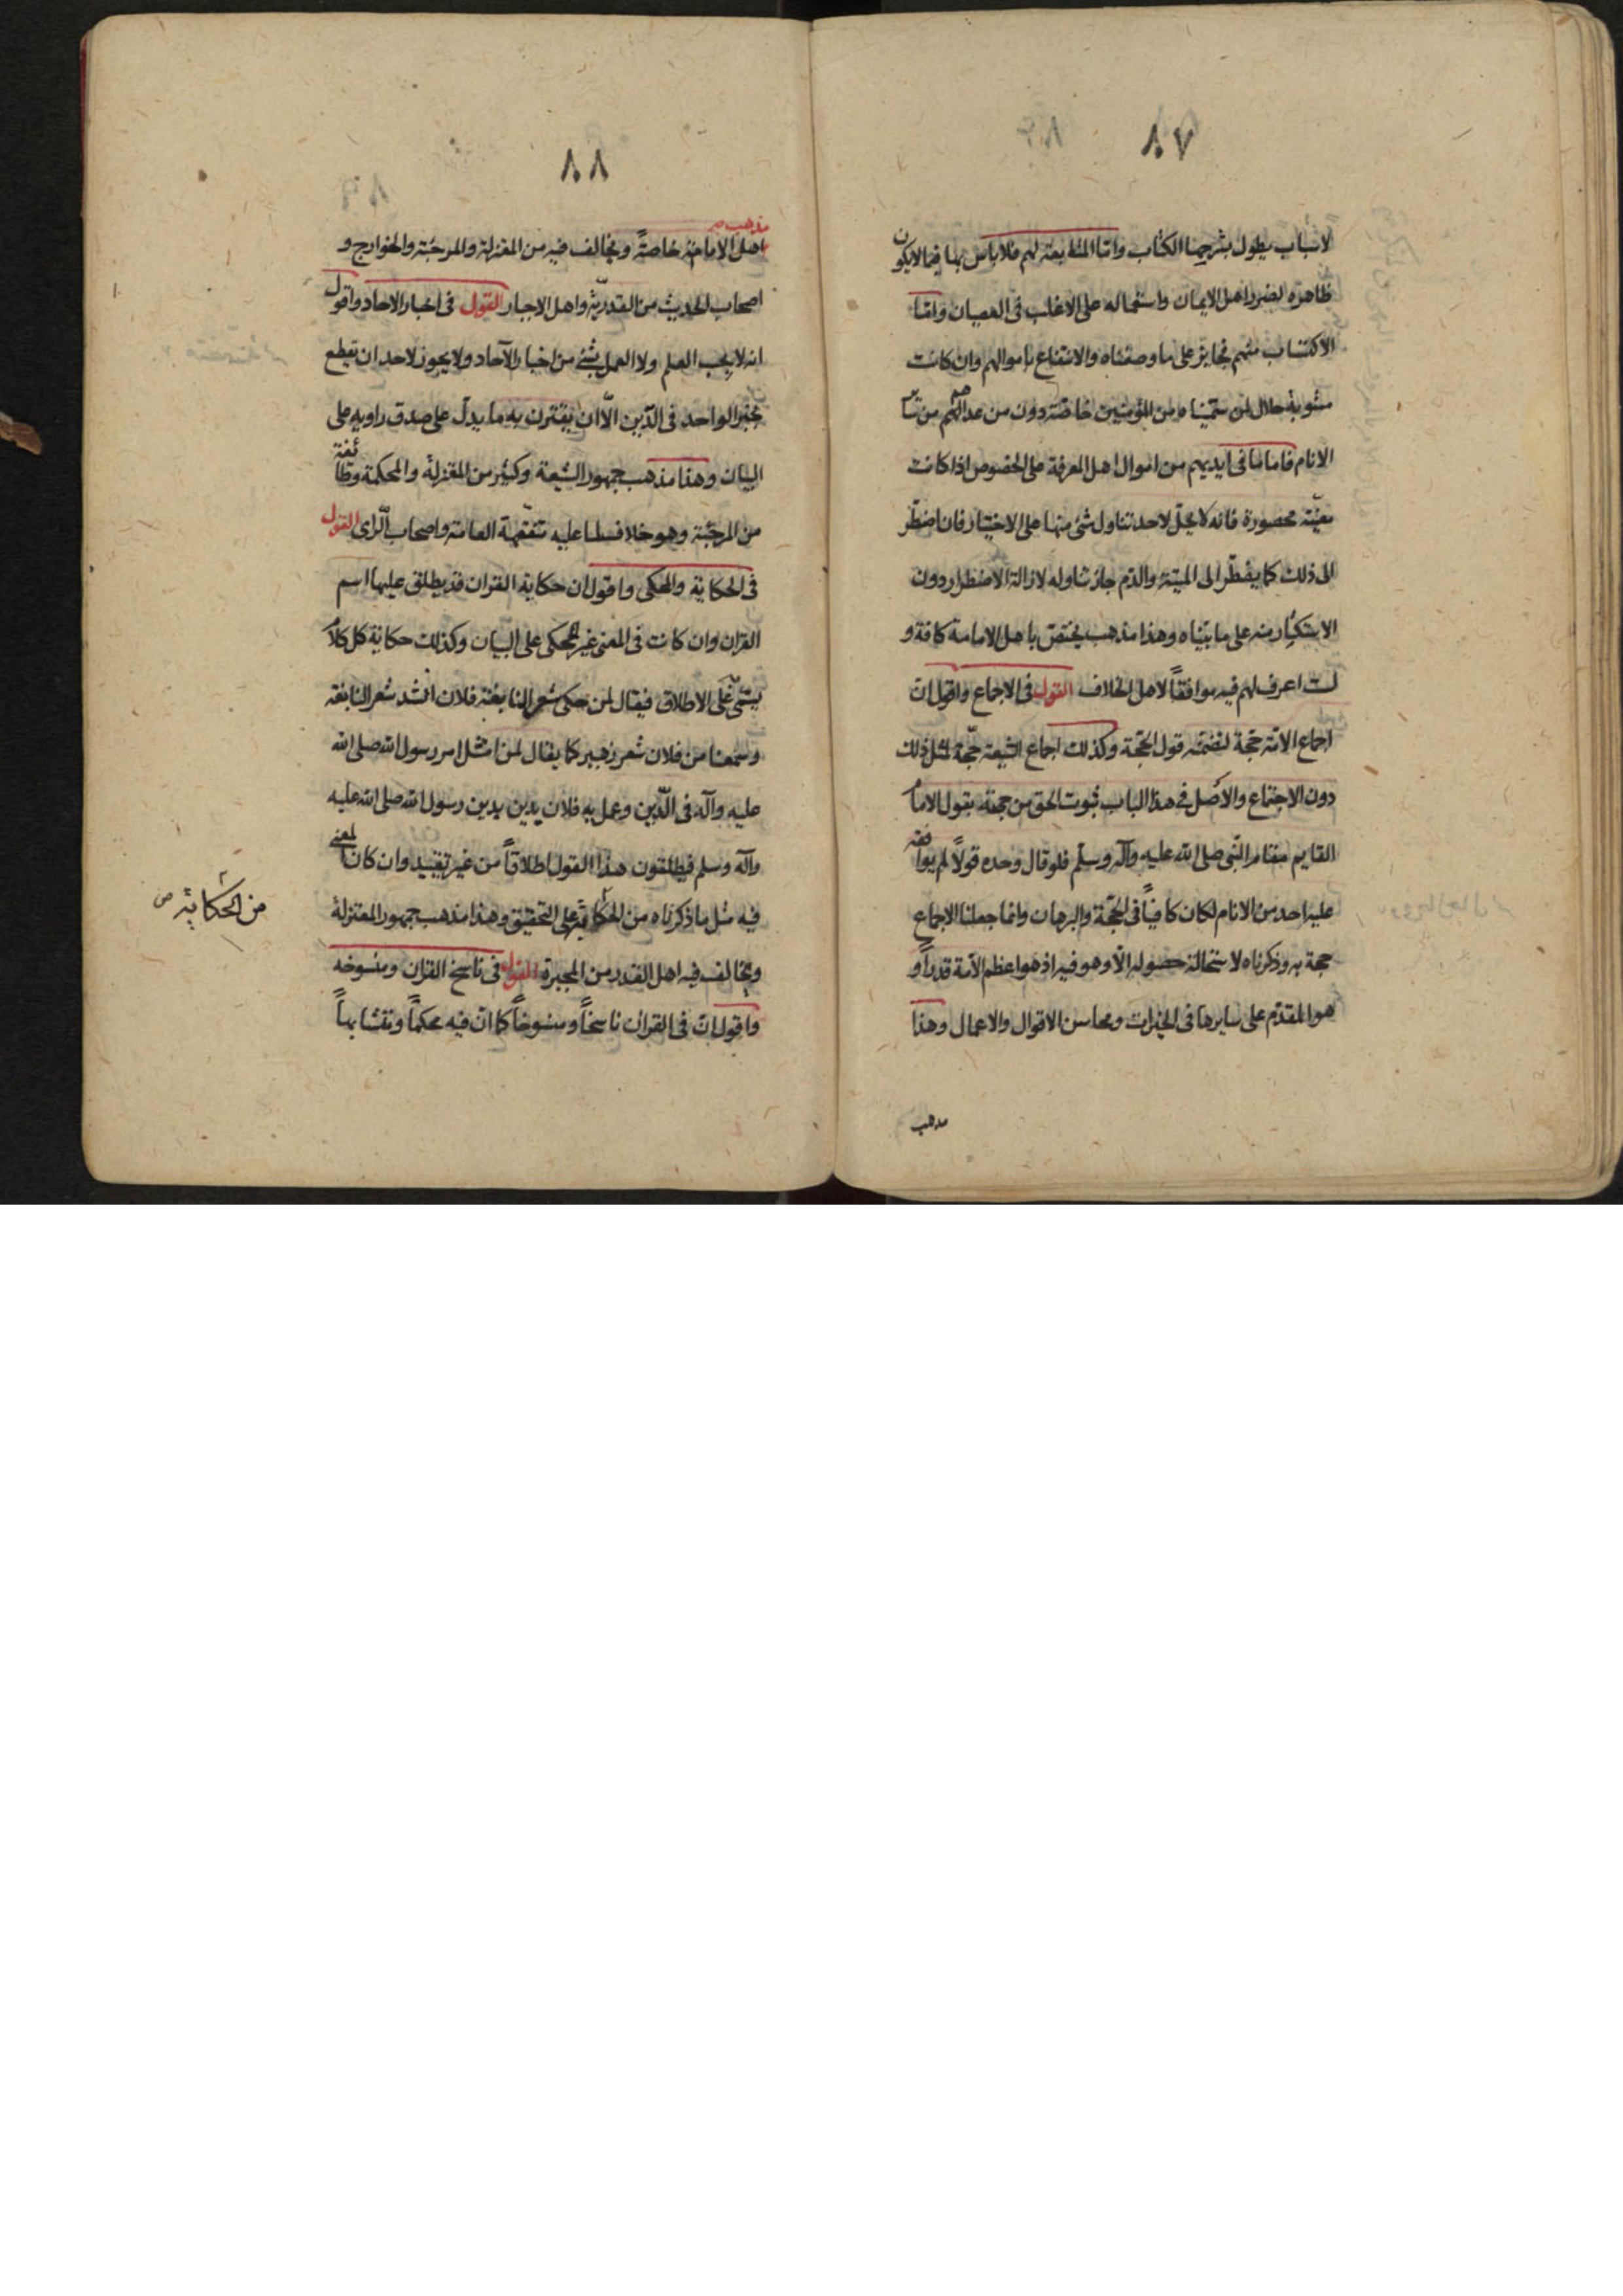 ٨٧
لاسباب يطول بشرحها الكتاب واما المتابعة لهم فلا باس بها فيما لا يكون
ظاهره لضرر اهل الايمان واستعماله على الاغلب فى العصيان واما
الاكتساب منهم فجايز على ما وصفناه والانتفاع باموالهم وان كانت
مشوبة حلال لمن سميناه من المؤمنين خاصة دون من عداهم من سائر
الانام فاما ما فى ايديهم من اموال اهل المعرفة على الخصوص اذا كانت
معينة محصورة فانه لا يحل لاحد تناول شئ منها على الاختيار فان اضطر
الى ذلك كما يضطر الى الميتة والدم جاز تناوله لازالة الاضطرار دون
الاستكثار منه على ما بيناه وهذا مذهب يختص باهل الامامة كافة و
لست اعرف لهم فيه موافقاً لاهل الخلاف القول فى الاجماع واقول ان
اجماع الامة حجة لتضمنه قول الحجة وكذلك اجماع الشيعة حجة لمثل ذلك
دون الاجتماع والاصل فى هذا الباب ثبوت الحق من جهته بقول الامام
القايم مقام النبى صلى الله عليه وآله وسلم فلو قال وحده قولاً لم يوافقه
عليه احد من الانام لكان كافياً فى الحجة والبرهان وانما جعلنا الاجماع
حجة به وذكرناه لاستحالة حصوله الا وهو فيه اذ هو اعظم الامة قدراً و
هو المقدم على سايرها فى الخيرات ومحاسن الاقوال والاعمال وهذا
مذهب
٨٨
مذهب
اهل الامامة خاصةً ويخالف فيه من المعتزلة والمرجئة والخوارج و
اصحاب الحديث من القدرية واهل الاجبار القول فى اخبار الاحاد واقول
انه لا يجب العلم ولا العمل بشئ من اخبار الآحاد ولا يجوز لاحد ان يقطع
بخبر الواحد فى الدين الا ان يقترن به ما يدل على صدق راويه على
البيان وهذا مذهب جمهور الشيعة وكثير من المعتزلة والمحكمة وطائفة
من المرجئة وهو خلاف لما عليه متفقهة العامة واصحاب الراى القول
فى الحكاية والمحكى واقول ان حكاية القران قد يطلق عليها اسم
القران وان كانت فى المعنى غير المحكى على البيان وكذلك حكاية كل كلام
يسمى على الاطلاق فيقال لمن حكى شعر النابغة فلان انشد شعر النابغة
وسمعنا من فلان شعر زهير كما يقال لمن امتثل امر رسول الله صلى الله
عليه وآله فى الدين وعمل به فلان يدين بدين رسول الله صلى الله عليه
وآله وسلم فيطلقون هذا القول اطلاقاً من غير تقييد وان كان المعنى
فيه مثل ما ذكرناه من الحكاية على التحقيق وهذا مذهب جمهور المعتزلة
من الحكاية ص
ويخالف فيه اهل القدر من المجبرة القول فى ناسخ القران ومنسوخه
واقول ان فى القران ناسخاً ومنسوخاً كما ان فيه محكماً ومتشابهاً